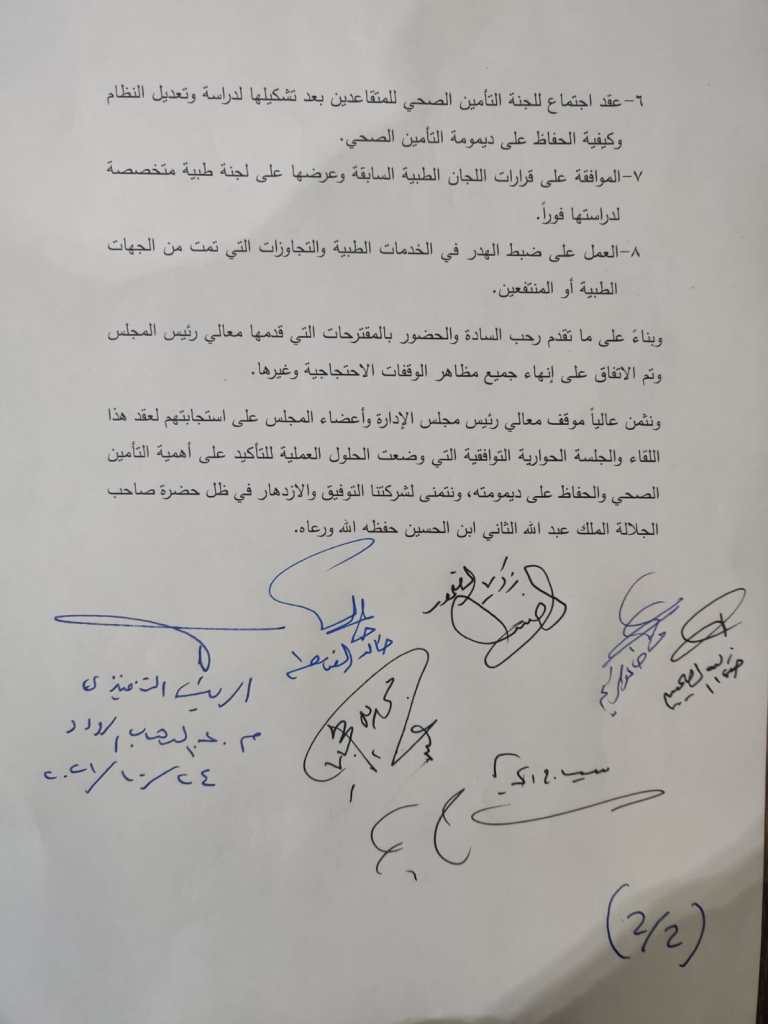 ٦-عقد اجتماع للجنة التأمين الصحي للمتقاعدين بعد تشكيلها لدراسة وتعديل النظام
وكيفية الحفاظ على ديمومة التأمين الصحي.
٧-الموافقة على قرارات اللجان الطبية السابقة وعرضها على لجنة طبية متخصصة
لدراستها فوراً.
٨-العمل على ضبط الهدر في الخدمات الطبية والتجاوزات التي تمت من الجهات
الطبية أو المنتفعين.
وبناءً على ما تقدم رحب السادة والحضور بالمقترحات التي قدمها معالي رئيس المجلس
وتم الاتفاق على إنهاء جميع مظاهر الوقفات الاحتجاجية وغيرها.
ونثمن عالياً موقف معالي رئيس مجلس الإدارة وأعضاء المجلس على استجابتهم لعقد هذا
اللقاء والجلسة الحوارية التوافقية التي وضعت الحلول العملية للتأكيد على أهمية التأمين
الصحي والحفاظ على ديمومته، ونتمنى لشركتنا التوفيق والازدهار في ظل حضرة صاحب
الجلالة الملك عبد الله الثاني ابن الحسين حفظه الله ورعاه.
خالد
الرئيس التنفيذي
م. عبد الوهاب
٢٠٢١/١٠/٢٤
(2/2)